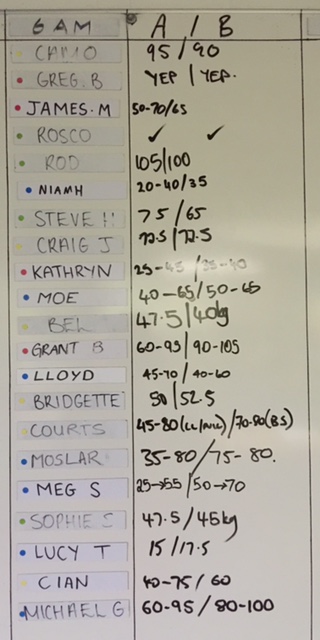 6AM A / B
CAMO 95/90
GREG.B YEP / YEP.
JAMES.M 50-70/65
ROSCO ✓ ✓
ROD 105/100
NIAMH 20-40/35
STEVE H 75/65
CRAIG J 72.5/72.5
KATHRYN 25-45/35-40
MOE 40-65/50-65
BEL 47.5/40kg
GRANT B 60-95/90-105
LLOYD 45-70/40-60
BRIDGETTE 50/52.5
COURTS 45-80 /70-80(BS)
MOSLAR 35-80/75-80.
MEG S 25→55/50→70
SOPHIE S 47.5/45kg
LUCY T 15/17.5
CIAN 40-75/60
MICHAEL G 60-95/80-100